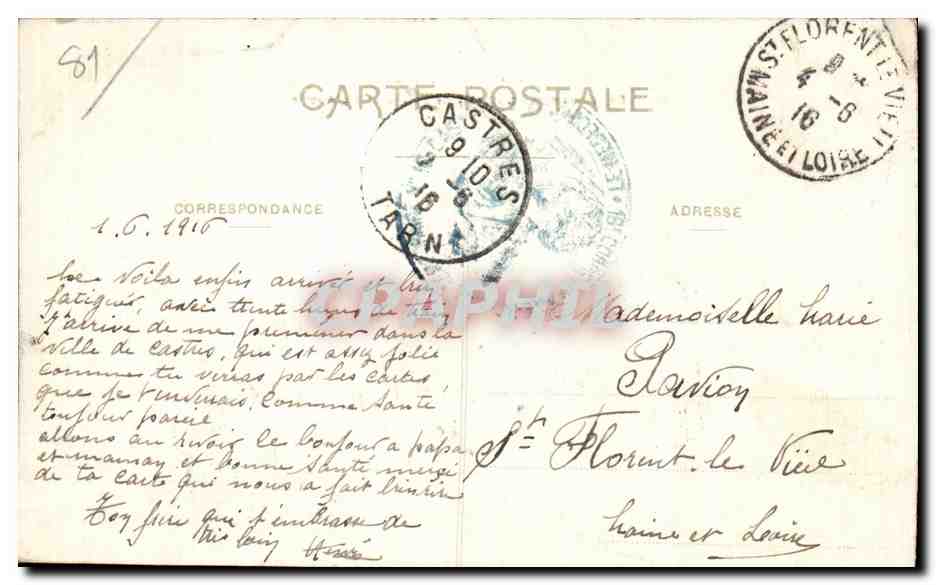 81
CARTE POSTALE
ST FLORENT LE VIEIL
4 -6
16
MAINE ET LOIRE
CASTRES
9 10
9 -6
16
TARN
CORRESPONDANCE
ADRESSE
1.6.1916
Me Voila enfin arrivé et bien
fatiguer, avec trente heures de train
J'arrive de me promener dans la
Ville de Castres, qui est assez jolie
comme tu verras par les cartes,
que je t'enverrais, comme Santé
toujour pareil
allons au revoir le bonjour a papa
et maman et bonne Santé merci
de ta carte qui nous a fait bien rire
Ton frère qui t'embrasse de
très loin
Mademoiselle Marie
Pavion
St Florent-le Vieil
Maine et Loire
CPAPHIL